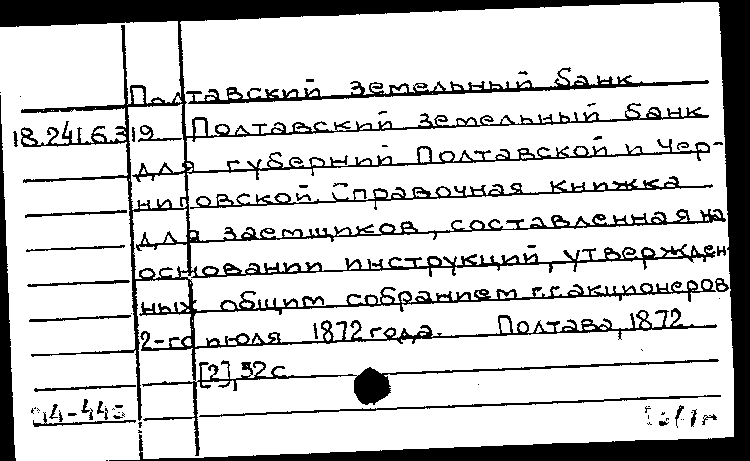 Полтавский земельный банк
18.241.6.319 Полтавский земельный банк
для губерний Полтавской и Чер-
ниговской. Справочная книжка
для заемщиков, составленная на
основании инструкций, утвержден-
ных общим собранием г.г. акционеров
2-го июля 1872 года. Полтава, 1872.
[2], 52 с.